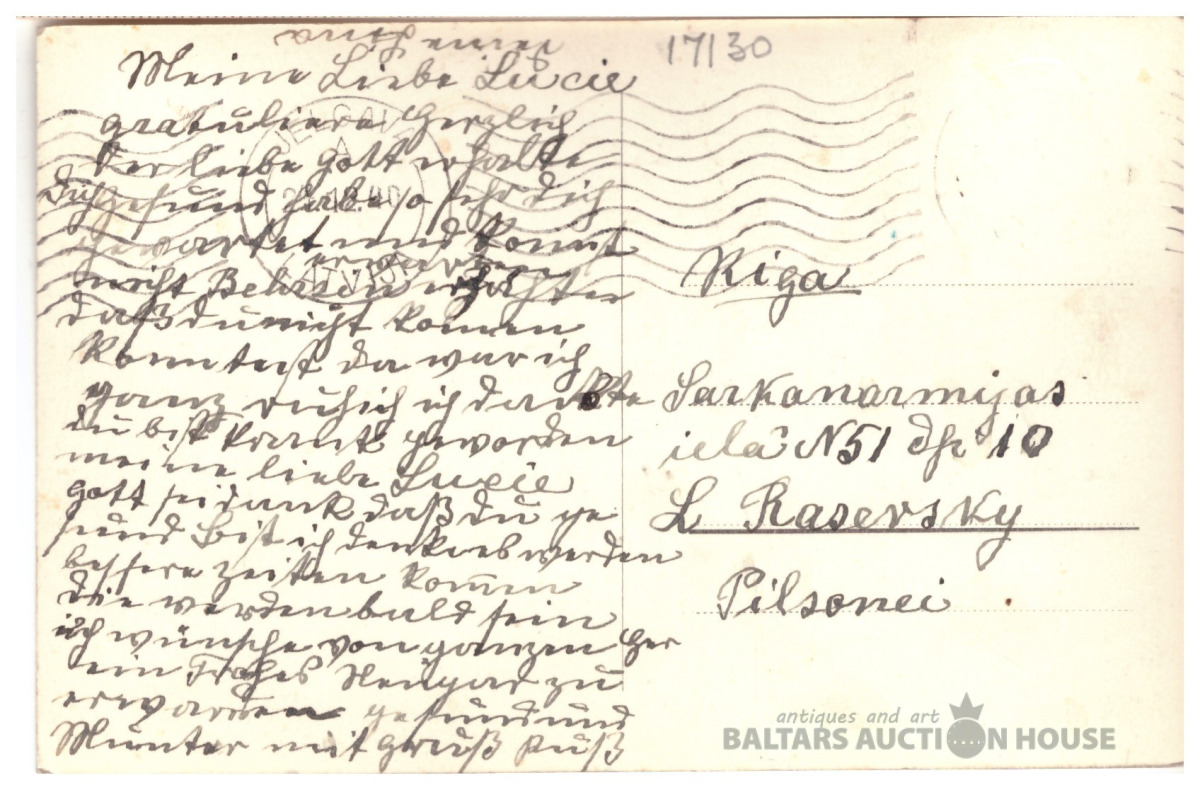 17130
Meine Liebe Lucie
gratuliere Herzlich
der liebe gott erhalte
dich gesund habe so sehr dich
gewartet und konnt
nicht
daß du nicht komen
konntest da war ich
ganz ruhich ich dachte
du bist krank geworden
meine liebe Lucie
gott sei dank daß du ge
sund bist ich denke es werden
bessere zeiten komen
die werden bald sein
ich wünsche von ganzen Her
ein Frohes Neujar zu
erwarten gesund und
Munter mit gruß kuß
Riga
Sarkanarmijas
ielâ N51 dz 10
L Rasevsky
Pilsonei
antiques and art
BALTARS AUCTION HOUSE